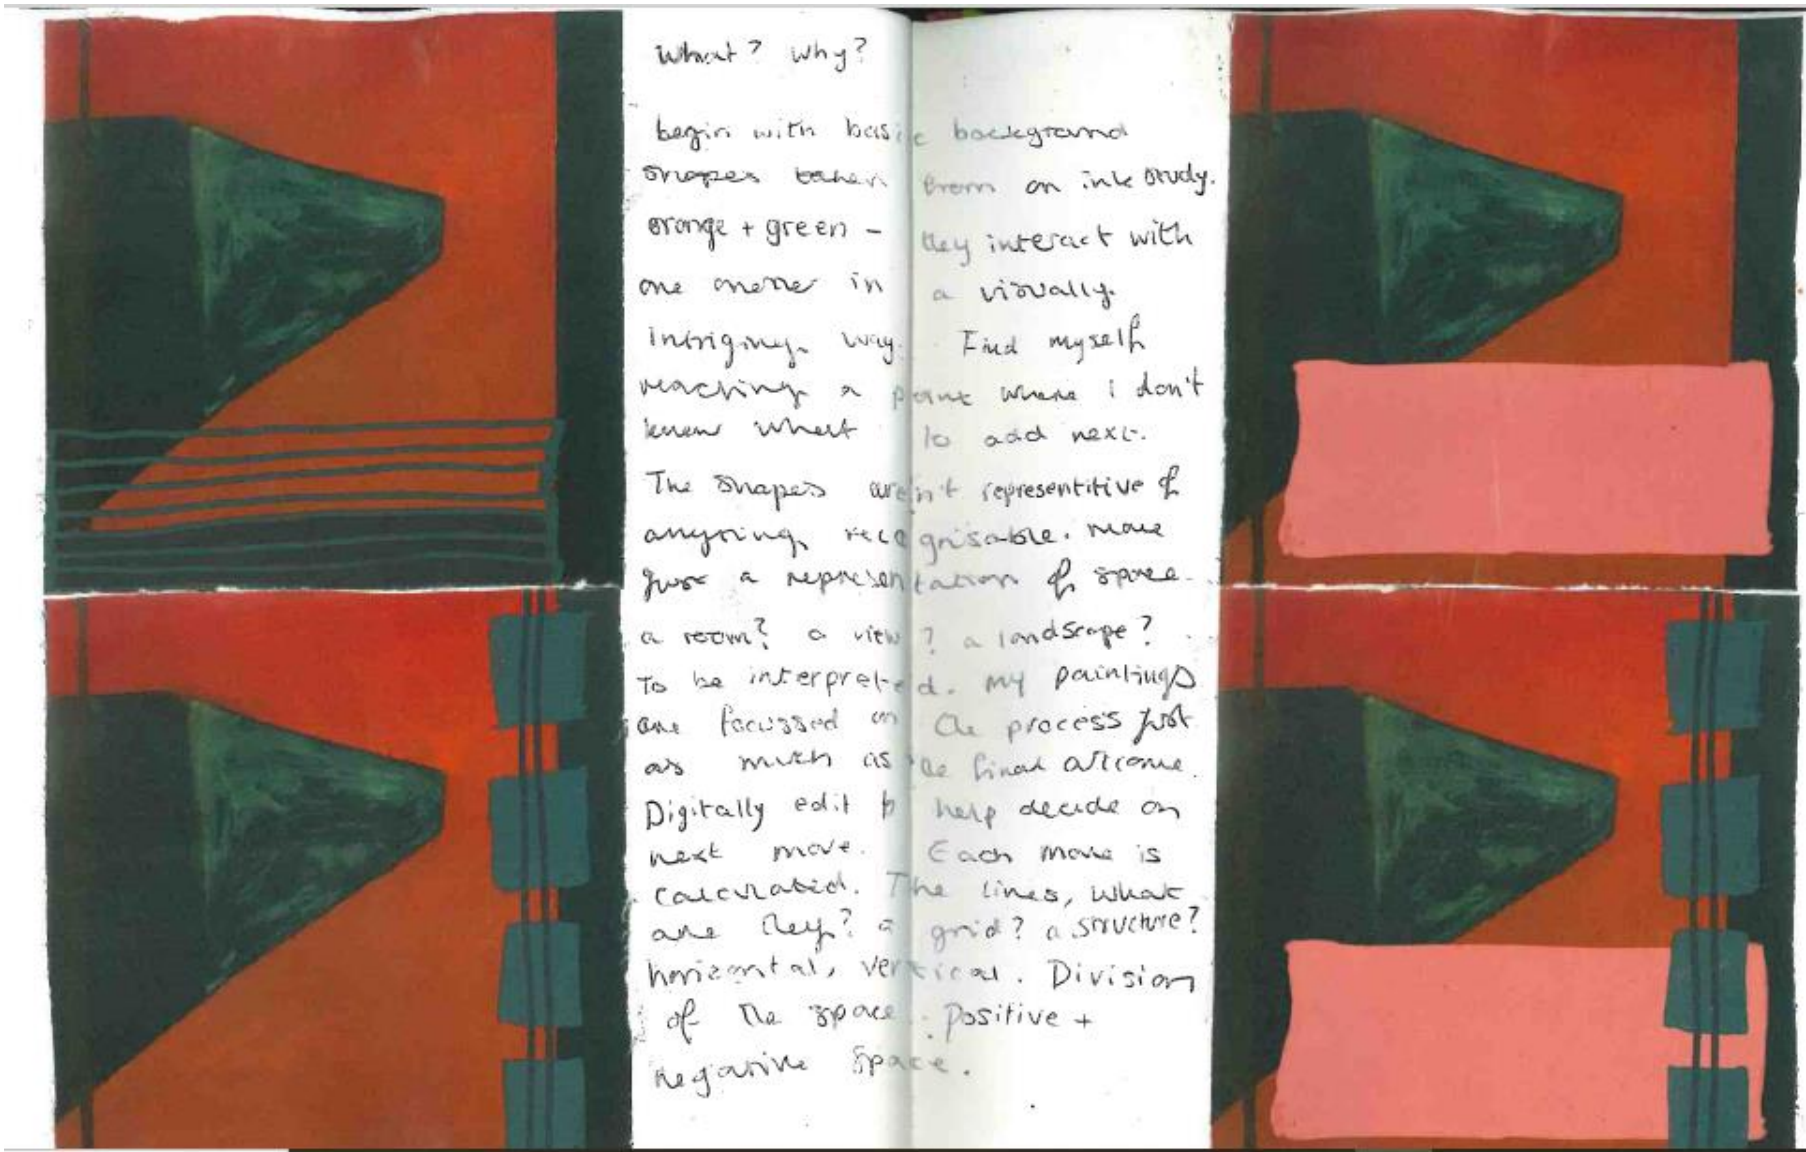 What? Why?
begin with basic background
shapes taken from an ink study.
orange + green - they interact with
one another in a visually
intriging way. Find myself
reaching a point where I don't
know what to add next.
The shapes aren't representitive of
anything recognisable. More
just a representation of space.
a room? a view? a landscape?
To be interpreted. My paintings
are focussed on the process just
as much as the final outcome.
Digitally edit to help decide on
next move. Each move is
calculated. The lines, what
are they? a grid? a structure?
horizontal, vertical. Division
of the space. Positive +
negative space.